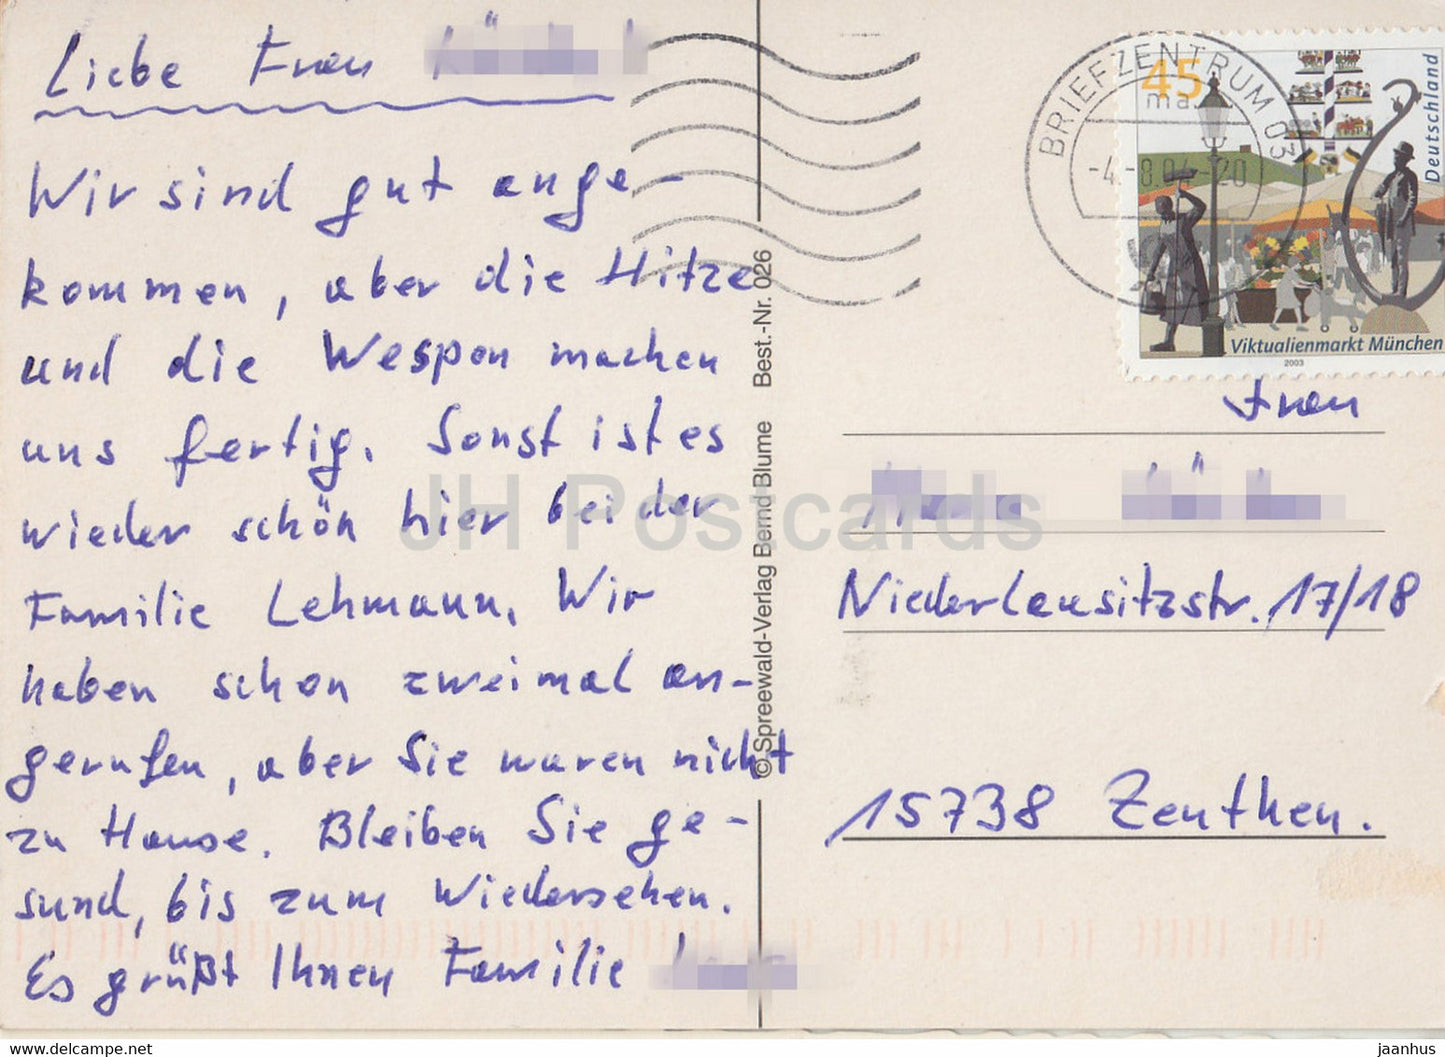 Liebe Frau
Wir sind gut ange-
kommen, aber die Hitze
und die Wespen machen
uns fertig. Sonst ist es
wieder schön hier bei der
Familie Lehmann. Wir
haben schon zweimal an-
gerufen, aber Sie waren nicht
zu Hause. Bleiben Sie ge-
sund, bis zum Wiedersehen.
Es grüßt Ihnen Familie
© Spreewald-Verlag Bernd Blume Best.-Nr. 026
BRIEFZENTRUM 03
ma
-4.-8.04-20
45
Deutschland
Viktualienmarkt München
2003
Frau
Niederlausitzstr. 17/18
15738 Zeuthen.
JH Postcards
delcampe.net
jaanhus